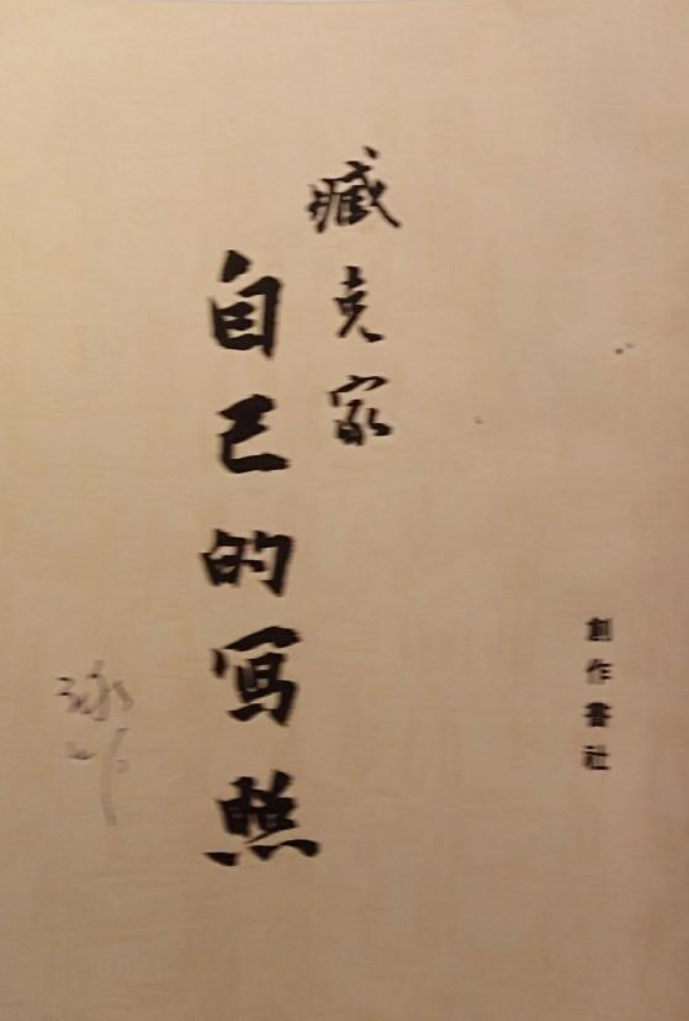 臧克家
自己的写照
創作書社